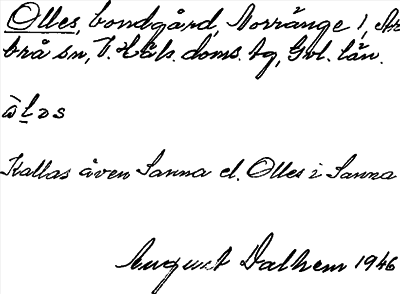 Olles, bondgård, Norränge 1, Ar
brå sn, V. Häls. doms. tg, Gvl. län.
ὰl̲əs
Kallas även Sanna el. Olles i Sanna
August Dalhem 1946